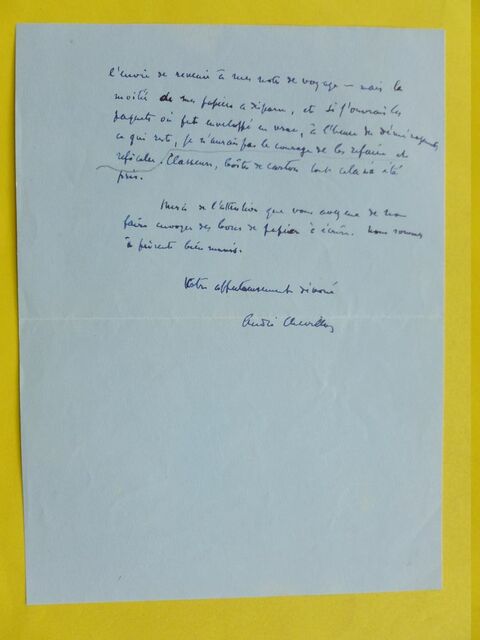 l'envie de revenir à mes notes de voyage – mais la
moitié de mes papiers a disparu, et si j'ouvrais les
paquets où fut enveloppé en vrac, à l'heure du déménagement,
ce qui reste, je n'aurais pas le courage de les refaire et
reficeler. Classeurs, boîtes de carton tout cela a été
pris.
Merci de l'attention que vous avez eue de nous
faire envoyer des bons de papier à écrire. Nous sommes
à présent bien munis.
Votre affectueusement dévoué
André Chevrillon